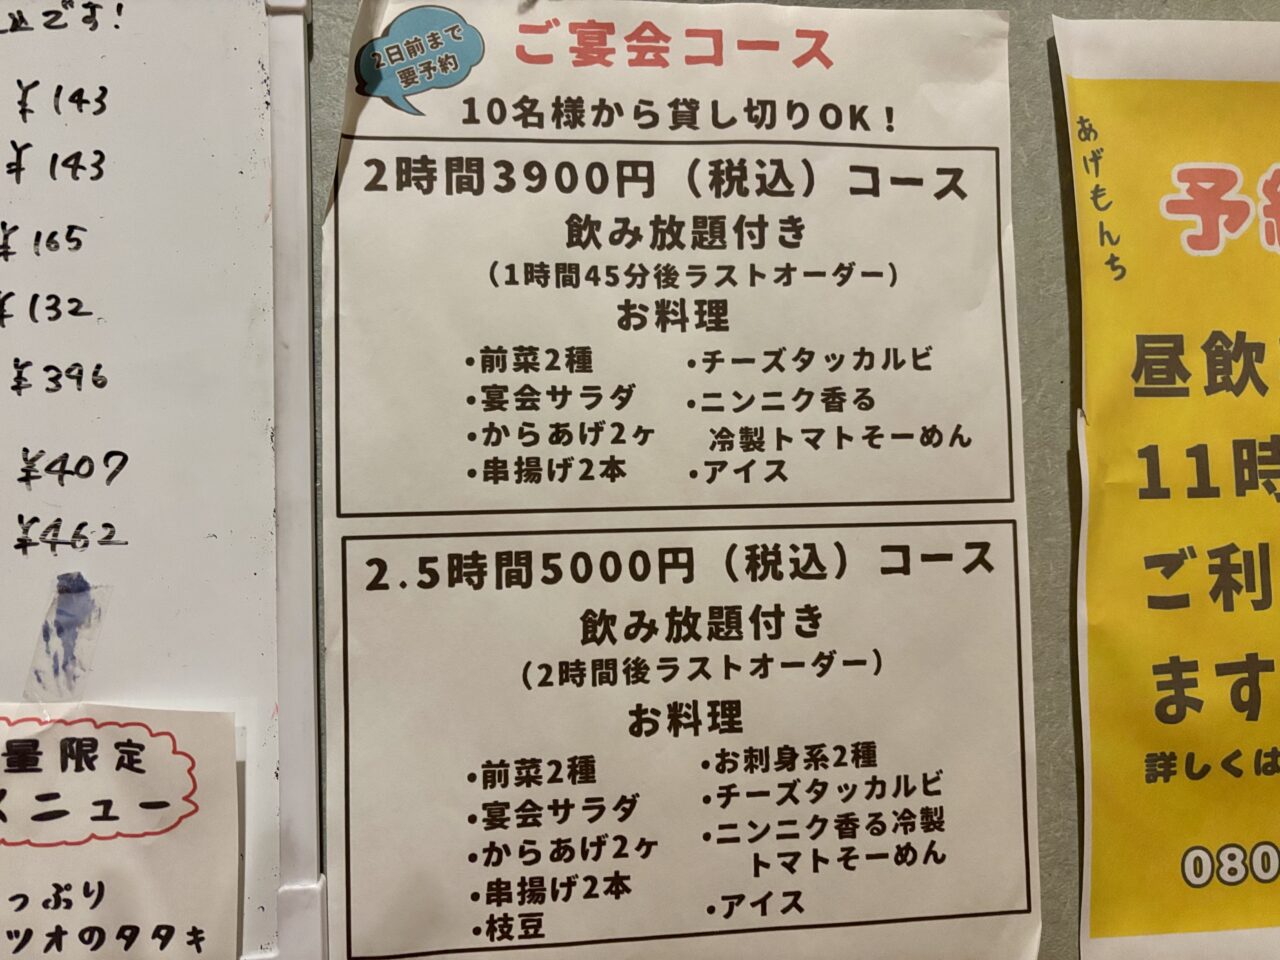 です!
¥143
¥143
¥165
¥132
¥396
¥407
¥462
量限定
メニュー
っぷり
ツオのタタキ
2日前まで
要予約
ご宴会コース
10名様から貸し切りOK!
2時間3900円(税込)コース
飲み放題付き
(1時間45分後ラストオーダー)
お料理
・前菜2種
・宴会サラダ
・からあげ2ヶ
・串揚げ2本
・チーズタッカルビ
・ニンニク香る
冷製トマトそーめん
・アイス
2.5時間5000円(税込)コース
飲み放題付き
(2時間後ラストオーダー)
お料理
・前菜2種
・宴会サラダ
・からあげ2ヶ
・串揚げ2本
・枝豆
・お刺身系2種
・チーズタッカルビ
・ニンニク香る冷製
トマトそーめん
・アイス
あげもんち
予
昼飲
11時
ご利
ます
詳しくは
080